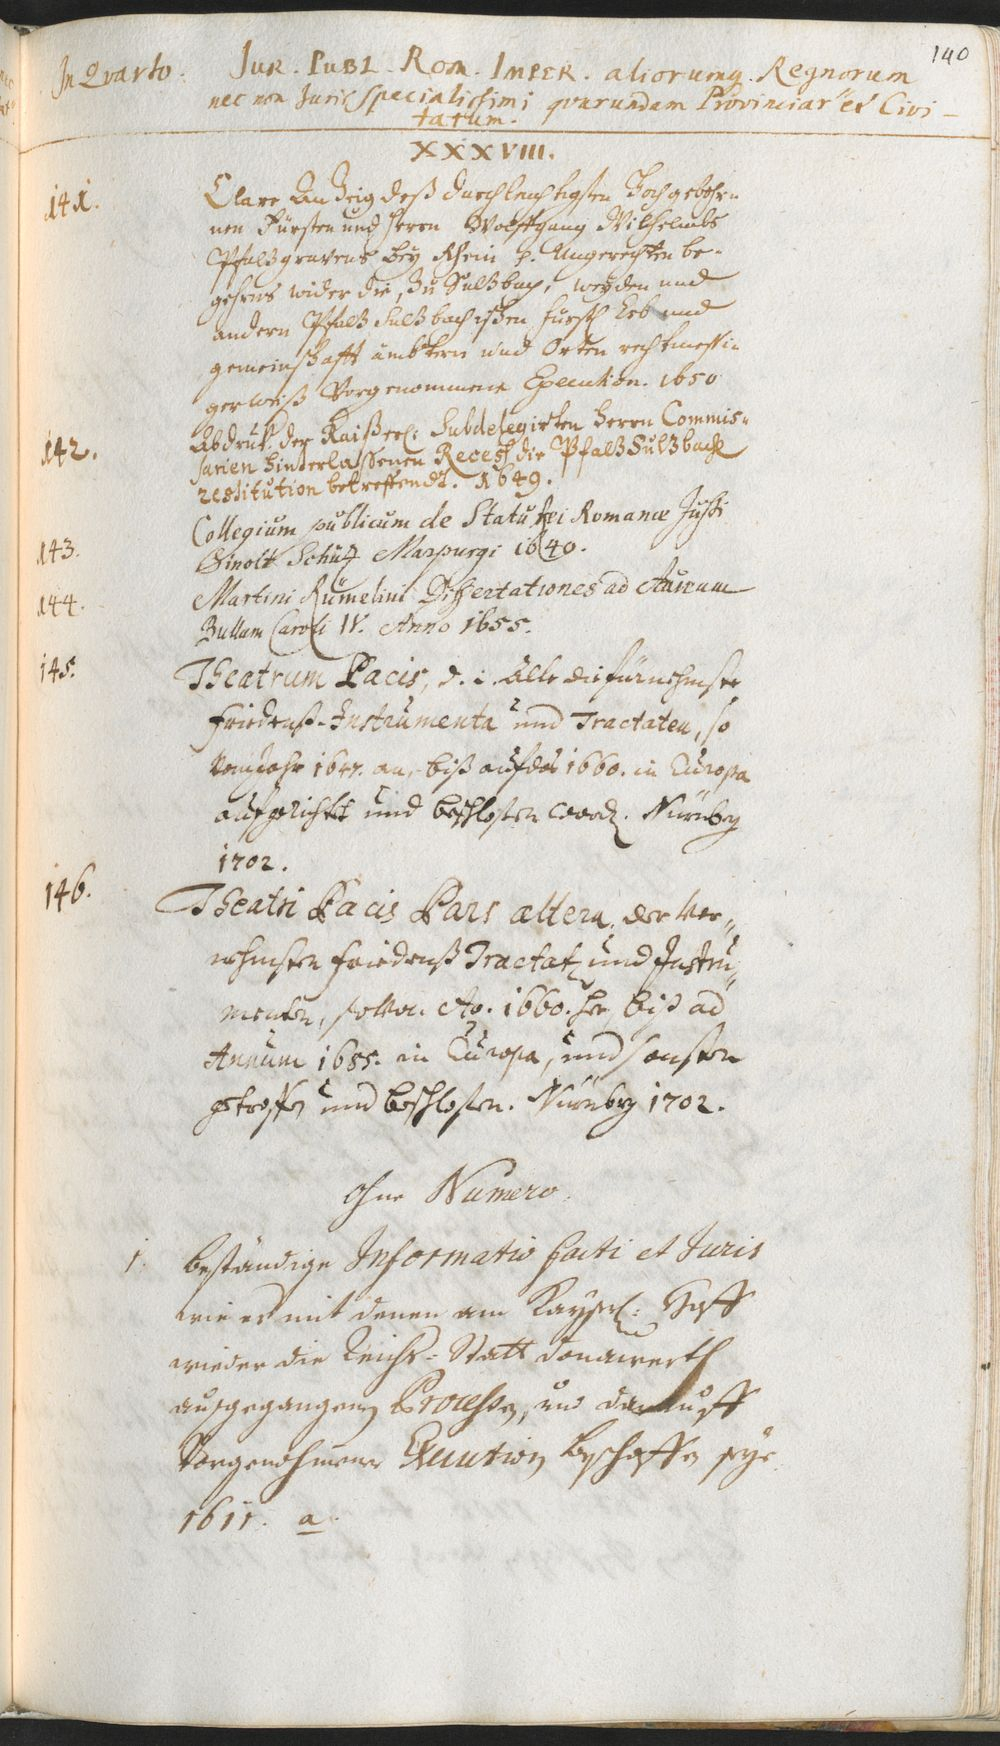 140
In Quarto. Jur. Publ. Rom. Imper. aliorumq. Regnorum
nec non Juris specialissimi quorundam Provinciar. et Civi-
tatum.
XXXVIII.
141. Clare Anzeig deß durchleuchtigsten Hochgebohr-
nen Fürsten und Herrn Wolffgang Wilhelmbs
Pfaltzgravens bey Rhein p. Ungerechten be-
gehrens wider die, zu Sultzbach, Weyden und
andern Pfaltz Sultzbachischen fürstl. Erb und
gemeinschafft ämbtern und Orten rechtmessi-
ger weiß Vorgenommene Execution. 1650
142. Abdruk der Kaißerl. Subdelegirten herrn Commis-
sarien hinterlassenen Recess die Pfaltz Sultzbach
restitution betreffendt. 1649.
143. Collegium publicum de Statu Rei Romanæ Justi
Sinolt Schütz Marpurgi 1640.
144. Martini Rümelini Dissertationes ad Auream
Bullam Caroli IV. Anno 1655.
145. Theatrum Pacis, d. i. alle die fürnehmste
Friedenß-Instrumenta und Tractaten, so
vom Jahr 1647. an, biß auf das 1660. in Europa
aufgerichtet und beschlossen word. Nürnberg
1702.
146. Theatri Pacis Pars altera, der Vor-
nehmsten Friedenß Tractat, und Instru-
menten, so von Ao. 1660. her biß ad
Annum 1685. in Europa, und sonsten
getroffen und beschlossen. Nürnberg 1702.
Ohne Numero.
1. Beständige Informatio facti et Juris
wie es mit denen am Kayserl. Hoff
wieder die Reichs-Statt Donawerth
ausgegangenen Processen, und darauff
Vorgenohmener Execution beschaffen seye
1611. a.